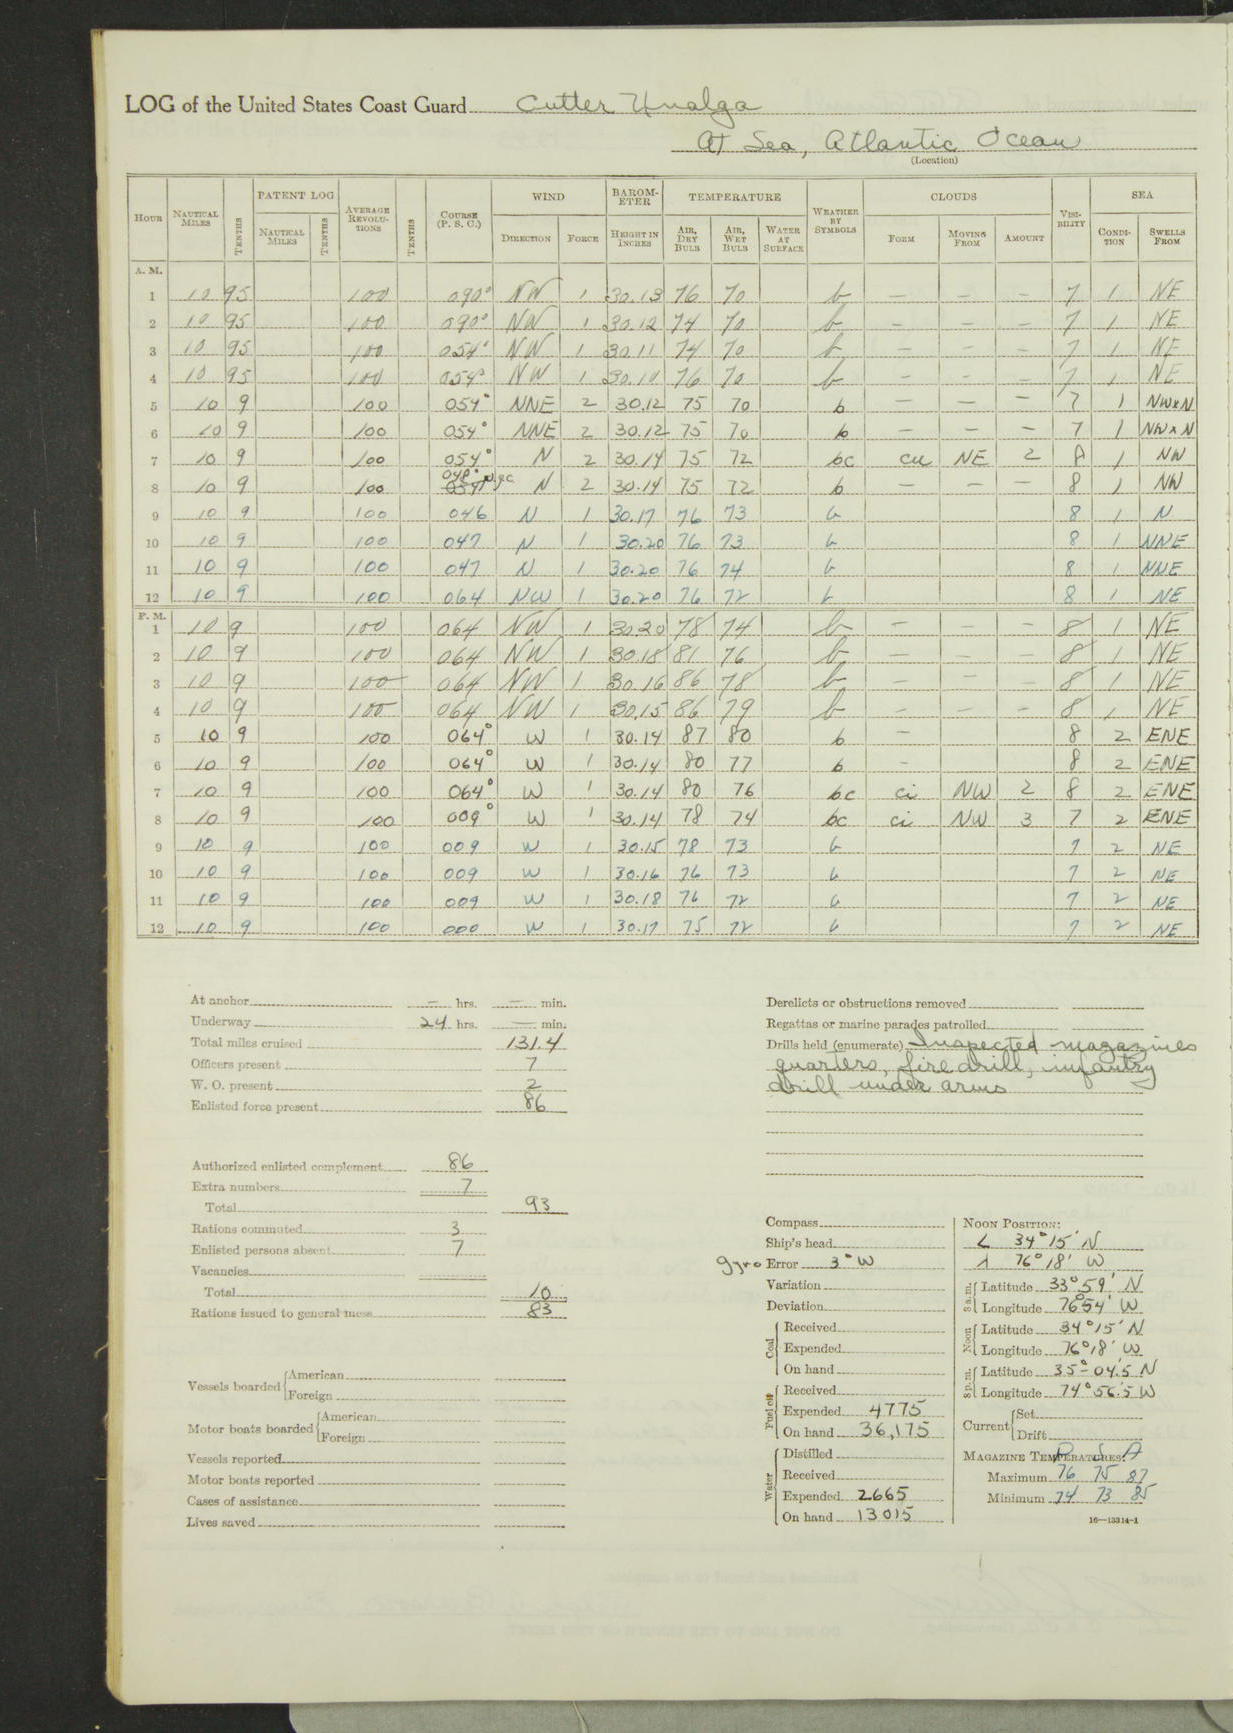 LOG of the United States Coast Guard Cutter Unalga
At Sea, Atlantic Ocean
(Location)
HOUR NAUTICAL MILES TENTHS PATENT LOG NAUTICAL MILES TENTHS AVERAGE REVOLUTIONS TENTHS COURSE (P. S. C.) WIND DIRECTION FORCE BAROMETER HEIGHT IN INCHES TEMPERATURE AIR, DRY BULB AIR, WET BULB WATER AT SURFACE WEATHER BY SYMBOLS CLOUDS FORM MOVING FROM AMOUNT VISIBILITY SEA CONDITION SWELLS FROM
A. M.
1 10 95 100 090° NW 1 30.13 76 70 b — — — 7 1 NE
2 10 95 100 090° NW 1 30.12 74 70 b — — — 7 1 NE
3 10 95 100 054° NW 1 30.11 74 70 b — — — 7 1 NE
4 10 95 100 054° NW 1 30.10 76 70 b — — — 7 1 NE
5 10 9 100 054° NNE 2 30.12 75 70 b — — — 7 1 NWxN
6 10 9 100 054° NNE 2 30.12 75 70 b — — — 7 1 NWxN
7 10 9 100 054° N 2 30.14 75 72 bc cu NE 2 8 1 NW
8 10 9 100 048° pgc 054° N 2 30.14 75 72 b — — — 8 1 NW
9 10 9 100 046 N 1 30.17 76 73 b 8 1 N
10 10 9 100 047 N 1 30.20 76 73 b 8 1 NNE
11 10 9 100 047 N 1 30.20 76 74 b 8 1 NNE
12 10 9 100 064 NW 1 30.20 76 72 b 8 1 NE
P. M.
1 10 9 100 064 NW 1 30.20 78 74 b — — — 8 1 NE
2 10 9 100 064 NW 1 30.18 81 76 b — — — 8 1 NE
3 10 9 100 064 NW 1 30.16 86 78 b — — — 8 1 NE
4 10 9 100 064 NW 1 30.15 86 79 b — — — 8 1 NE
5 10 9 100 064° W 1 30.14 87 80 b — 8 2 ENE
6 10 9 100 064° W 1 30.14 80 77 b — 8 2 ENE
7 10 9 100 064° W 1 30.14 80 76 bc ci NW 2 8 2 ENE
8 10 9 100 009° W 1 30.14 78 74 bc ci NW 3 7 2 ENE
9 10 9 100 009 W 1 30.15 78 73 b 7 2 NE
10 10 9 100 009 W 1 30.16 76 73 b 7 2 NE
11 10 9 100 009 W 1 30.18 76 72 b 7 2 NE
12 10 9 100 000 W 1 30.17 75 72 b 7 2 NE
At anchor — hrs. — min.
Underway 24 hrs. — min.
Total miles cruised 131.4
Officers present 7
W. O. present 2
Enlisted force present 86
Authorized enlisted complement 86
Extra numbers 7
Total 93
Rations commuted 3
Enlisted persons absent 7
Vacancies
Total 10
Rations issued to general mess 83
Vessels boarded American
Foreign
Motor boats boarded American
Foreign
Vessels reported
Motor boats reported
Cases of assistance
Lives saved
Derelicts or obstructions removed
Regattas or marine parades patrolled
Drills held (enumerate) Inspected magazines
quarters, fire drill, infantry
drill under arms
Compass
Ship's head
Gyro Error 3° W
Variation
Deviation
Coal Received
Expended
On hand
Fuel oil Received
Expended 4775
On hand 36,175
Water Distilled
Received
Expended 2665
On hand 13015
NOON POSITION:
L 34° 15' N
λ 76° 18' W
8 a. m. Latitude 33° 59' N
Longitude 76° 54' W
Noon Latitude 34° 15' N
Longitude 76° 18' W
8 p. m. Latitude 35° - 04.5 N
Longitude 74° 56.5' W
Current Set
Drift
MAGAZINE TEMPERATURES: P S A
Maximum 76 75 87
Minimum 74 73 85
16—13314-1